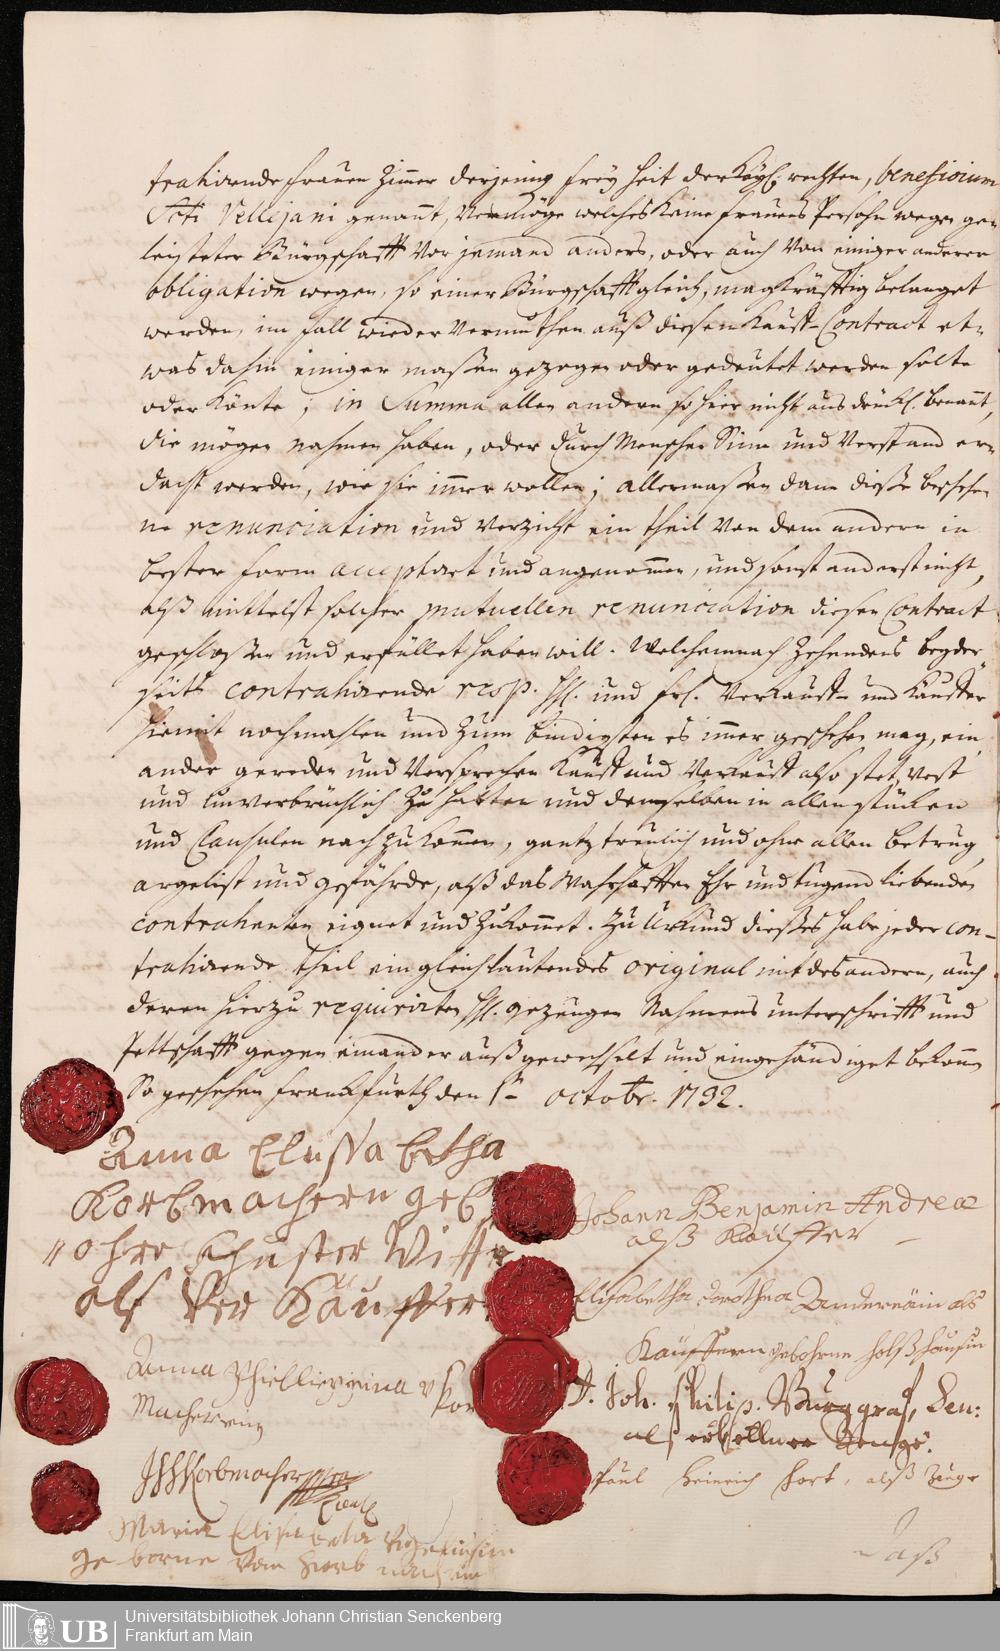 trahirende Frauen Zimmer derjenig frey heit der Kayß. rechten, beneficium
Scti Vellejani genannt, Vermöge welches Keine Frauens Persohn wegen ge-
leisteter Bürgschafft vor jemand anders, oder auch von einiger anderer
obligation wegen, so einer Bürgschafft gleich, mag Kräfftig belanget
werden, im fall wieder Vermuthen auß diesen Kauff-Contract et-
was dahin einiger maßen gezogen oder gedeutet werden solte
oder Könte; in Summa allen andern so hier nicht ausdrückl. benant,
die mögen nahmen haben, oder durch Menschen Sinn und Verstand er-
dacht werden, wie sie immer wollen; allermaßen dann diese beschehe-
ne renunciation und Verzicht ein theil von dem andern in
bester form acceptirt und angenommen, und sonst anderst nicht,
alß mittelst solcher mutuellen renunciation diesen Contract
geschloßen und erfüllet haben will. Welchemnach Zehendens beyder
seits contrahirende resp. HH. und Fr. Verkauffer und Käuffer
hiermit nochmahlen und zum bündigsten es immer geschehen mag, ein
ander gereden und Versprechen Kauff und Verkauff also stet, Vest
und unverbrüchlich zu halten und demselben in allen stücken
und Clausulen nachzukommen, gantz treulich und ohne allen betrug,
argelist und gefährde, alß das Wahrhafften Ehr und tugend liebenden
contrahenten eignet und zukommet. Zu Urkund dießes habe jeder con-
trahirende theil ein gleichlautendes original mit des andern, auch
deren hierzu requirirten HH. gezeugen Nahmens unterschrifft und
Pettschafft gegen einander außgewechselt und eingehändiget bekommen
So geschehen Franckfurth den 1ten octobr. 1732.
Anna Elissabetha
Korbmachern geb
Schuster Wittib
als Ver Käufferin
Johann Benjamin Andreæ
alß Käuffer
Elisabetha Dorothea Andreäin als
Käufferin gebohrne holßhausin
Anna
Macherin
J. Joh. Philip. Burggraf, Sen:
als erbettener Zeuge.
Korbmacher
Paul Heinrich Hort, alß Zeuge
Maria Elisabetha
geborne Von
Daß
UB
Universitätsbibliothek Johann Christian Senckenberg
Frankfurt am Main